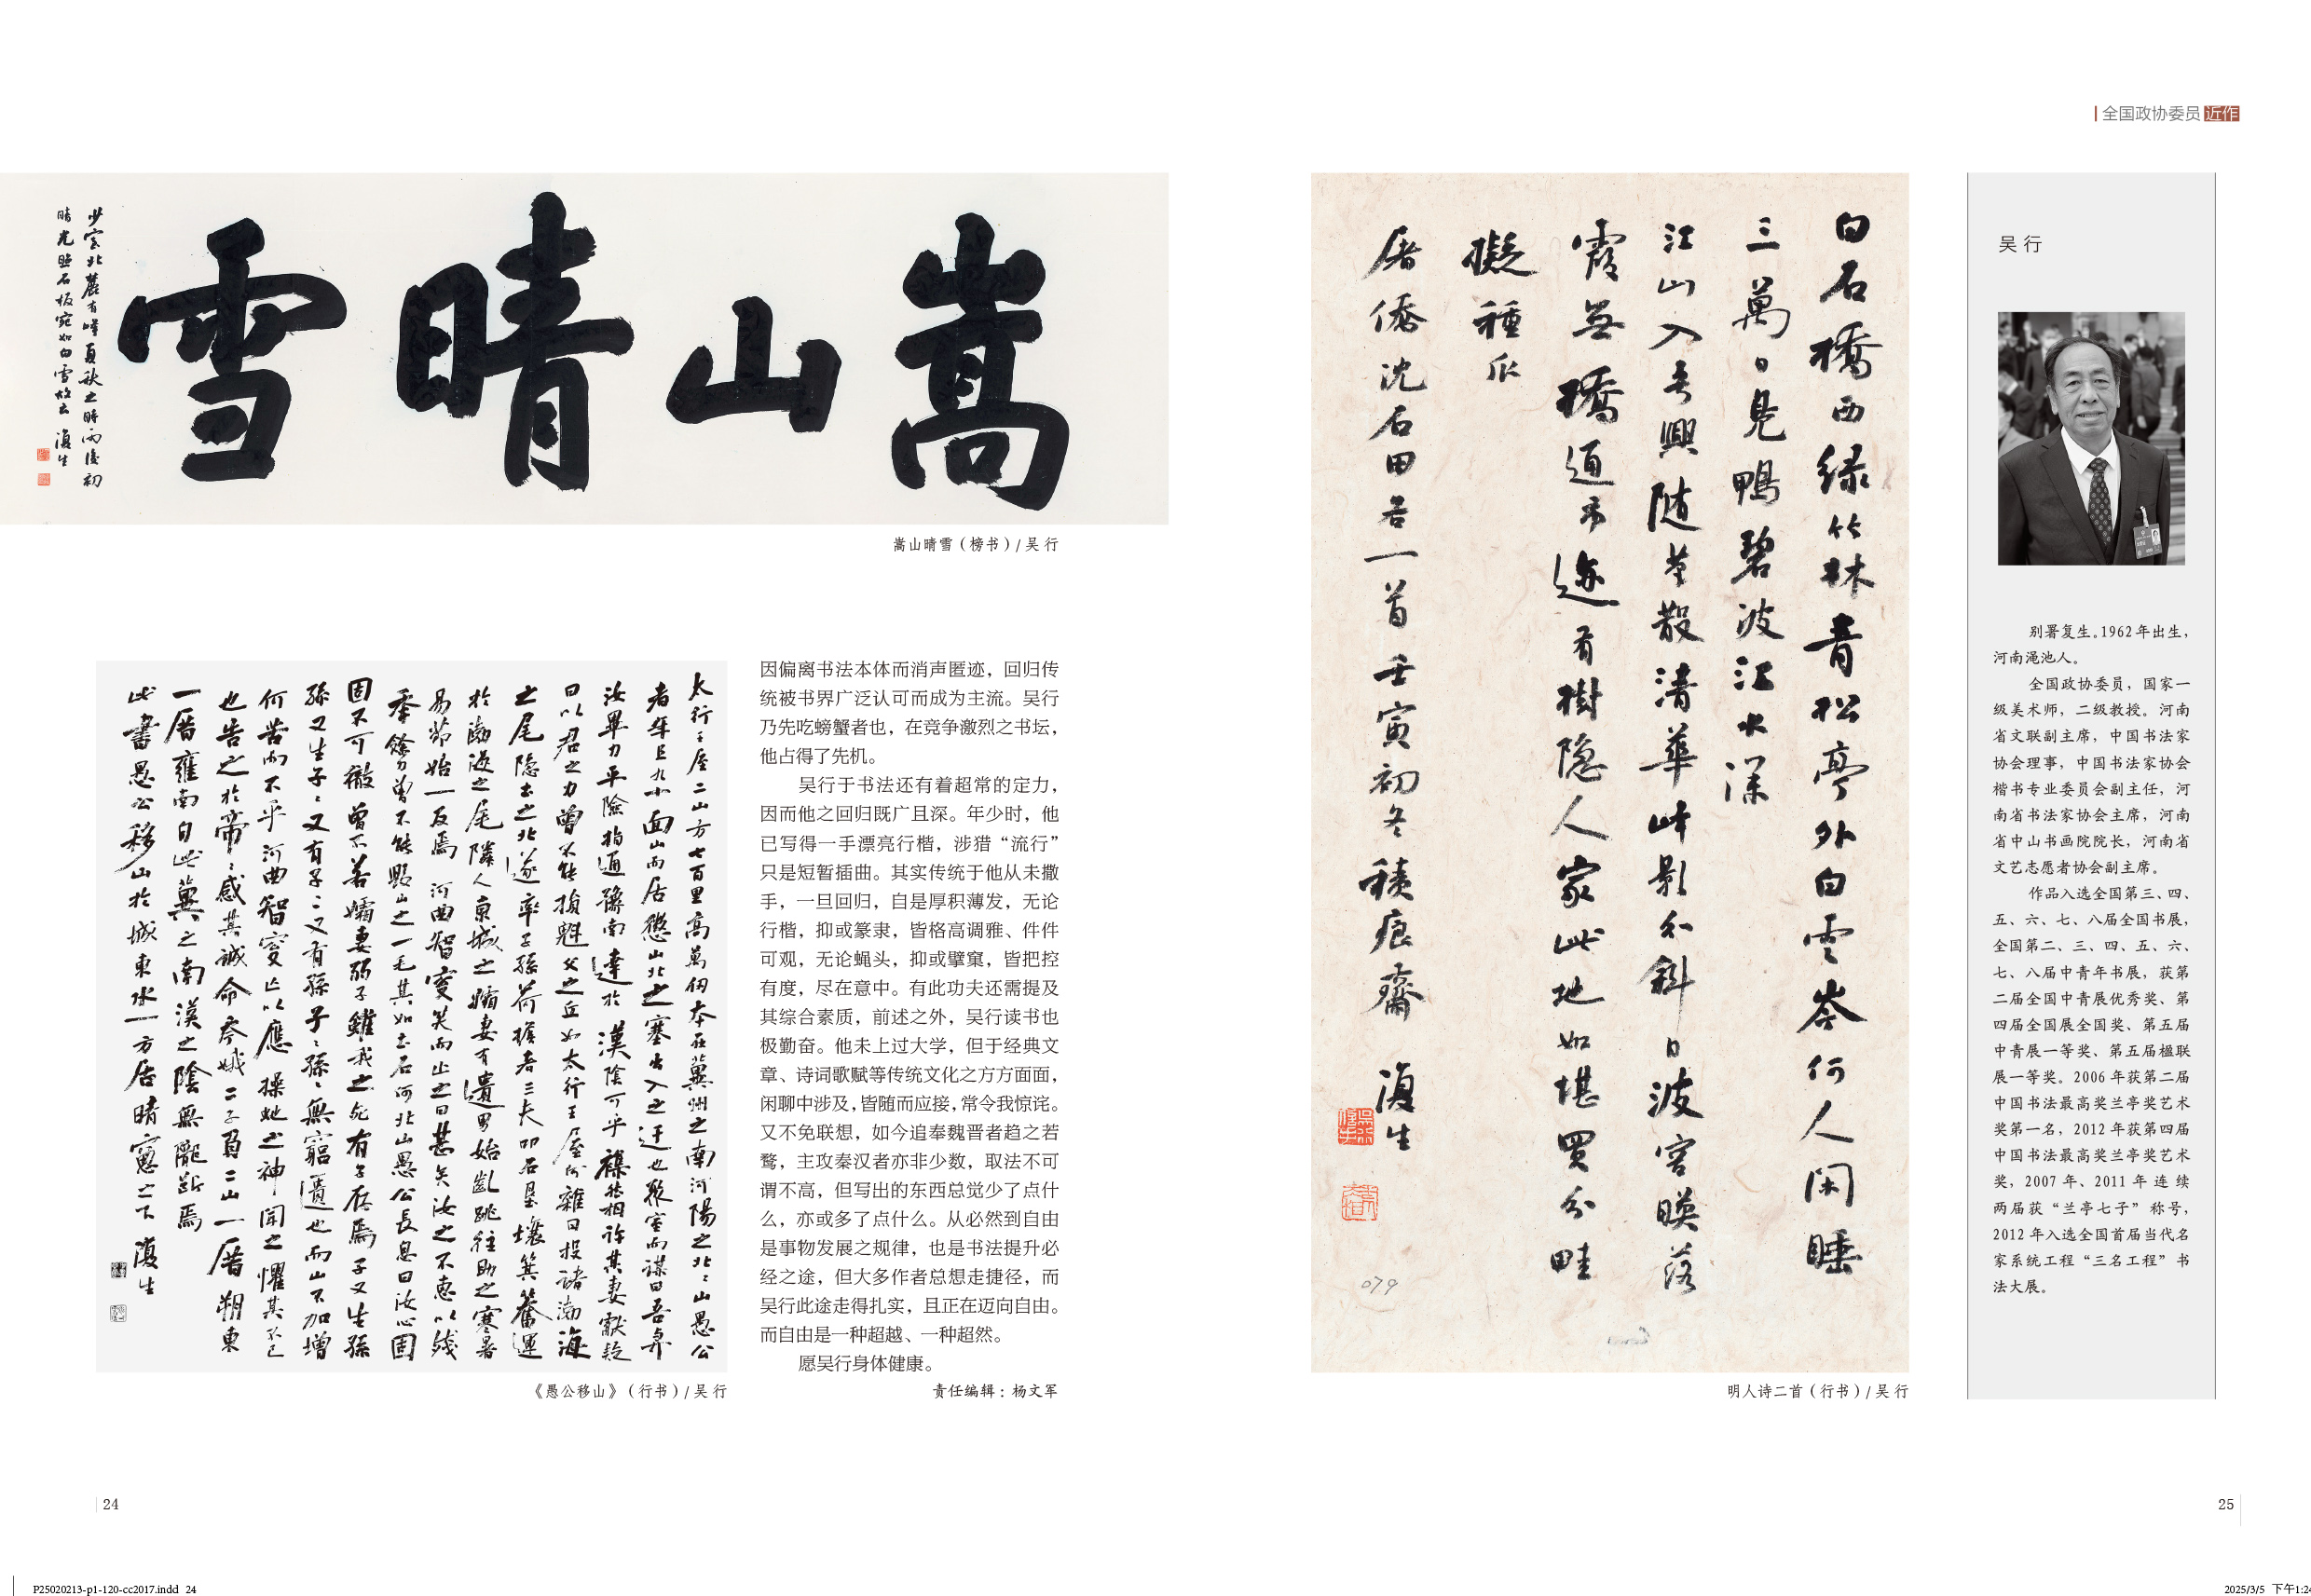 全国政协委员近作
嵩山晴雪
少室北麓有峰夏秋之时雨後初
晴光照石板宛如白雪故云 復生
嵩山晴雪（榜书）/ 吴 行
太行王屋二山方七百里高萬仞本在冀州之南河陽之北北山愚公
者年且九十面山而居懲山北之塞出入之迂也聚室而谋曰吾与
汝畢力平險指通豫南達於漢陰可乎襍然相许其妻獻疑
曰以君之力曾不能損魁父之丘如太行王屋何雜曰投諸渤海
之尾隐土之北遂率子孫荷擔者三夫叩石垦壤箕畚運
於渤海之尾隣人京城之孀妻有遺男始齔跳往助之寒暑
易节始一反焉河曲智叟笑而止之曰甚矣汝之不惠以残
年餘力曾不能毁山之一毛其如土石何北山愚公長息曰汝心固
固不可徹曾不若孀妻弱子雖我之死有子存焉子又生孫
孫又生子子又有子子又有孫子子孫孫無窮匱也而山不加增
何苦而不平河曲智叟亡以應操蛇之神聞之懼其不已
也告之於帝帝感其誠命夸娥二子負二山一厝朔東
一厝雍南自此冀之南漢之陰無隴断焉
此書愚公移山於城東水一方居晴窗之下 復生
《愚公移山》（行书）/ 吴 行
因偏离书法本体而消声匿迹，回归传
统被书界广泛认可而成为主流。吴行
乃先吃螃蟹者也，在竞争激烈之书坛，
他占得了先机。
吴行于书法还有着超常的定力，
因而他之回归既广且深。年少时，他
已写得一手漂亮行楷，涉猎“流行”
只是短暂插曲。其实传统于他从未撒
手，一旦回归，自是厚积薄发，无论
行楷，抑或篆隶，皆格高调雅、件件
可观，无论蝇头，抑或擘窠，皆把控
有度，尽在意中。有此功夫还需提及
其综合素质，前述之外，吴行读书也
极勤奋。他未上过大学，但于经典文
章、诗词歌赋等传统文化之方方面面，
闲聊中涉及，皆随而应接，常令我惊诧。
又不免联想，如今追奉魏晋者趋之若
鹜，主攻秦汉者亦非少数，取法不可
谓不高，但写出的东西总觉少了点什
么，亦或多了点什么。从必然到自由
是事物发展之规律，也是书法提升必
经之途，但大多作者总想走捷径，而
吴行此途走得扎实，且正在迈向自由。
而自由是一种超越、一种超然。
愿吴行身体健康。
责任编辑：杨文军
白石橋西绿竹林青松亭外白雲岑何人閑睡
三萬日見鴨碧波江水深
江山入吾興随步散清華峰影分斜日波容映落
霞無橋通市迹有樹隐人家此地如堪買分畦
擬種瓜
屠侨沈石田君一首壬寅初冬積痕齋 復生
079
明人诗二首（行书）/ 吴 行
吴 行
别署复生。1962年出生，
河南渑池人。
全国政协委员，国家一
级美术师，二级教授。河南
省文联副主席，中国书法家
协会理事，中国书法家协会
楷书专业委员会副主任，河
南省书法家协会主席，河南
省中山书画院院长，河南省
文艺志愿者协会副主席。
作品入选全国第三、四、
五、六、七、八届全国书展，
全国第二、三、四、五、六、
七、八届中青年书展，获第
二届全国中青展优秀奖、第
四届全国展全国奖、第五届
中青展一等奖、第五届楹联
展一等奖。2006年获第二届
中国书法最高奖兰亭奖艺术
奖第一名，2012年获第四届
中国书法最高奖兰亭奖艺术
奖，2007年、2011年连续
两届获“兰亭七子”称号，
2012年入选全国首届当代名
家系统工程“三名工程”书
法大展。
24
25
P25020213-p1-120-cc2017.indd 24
2025/3/5 下午1:24